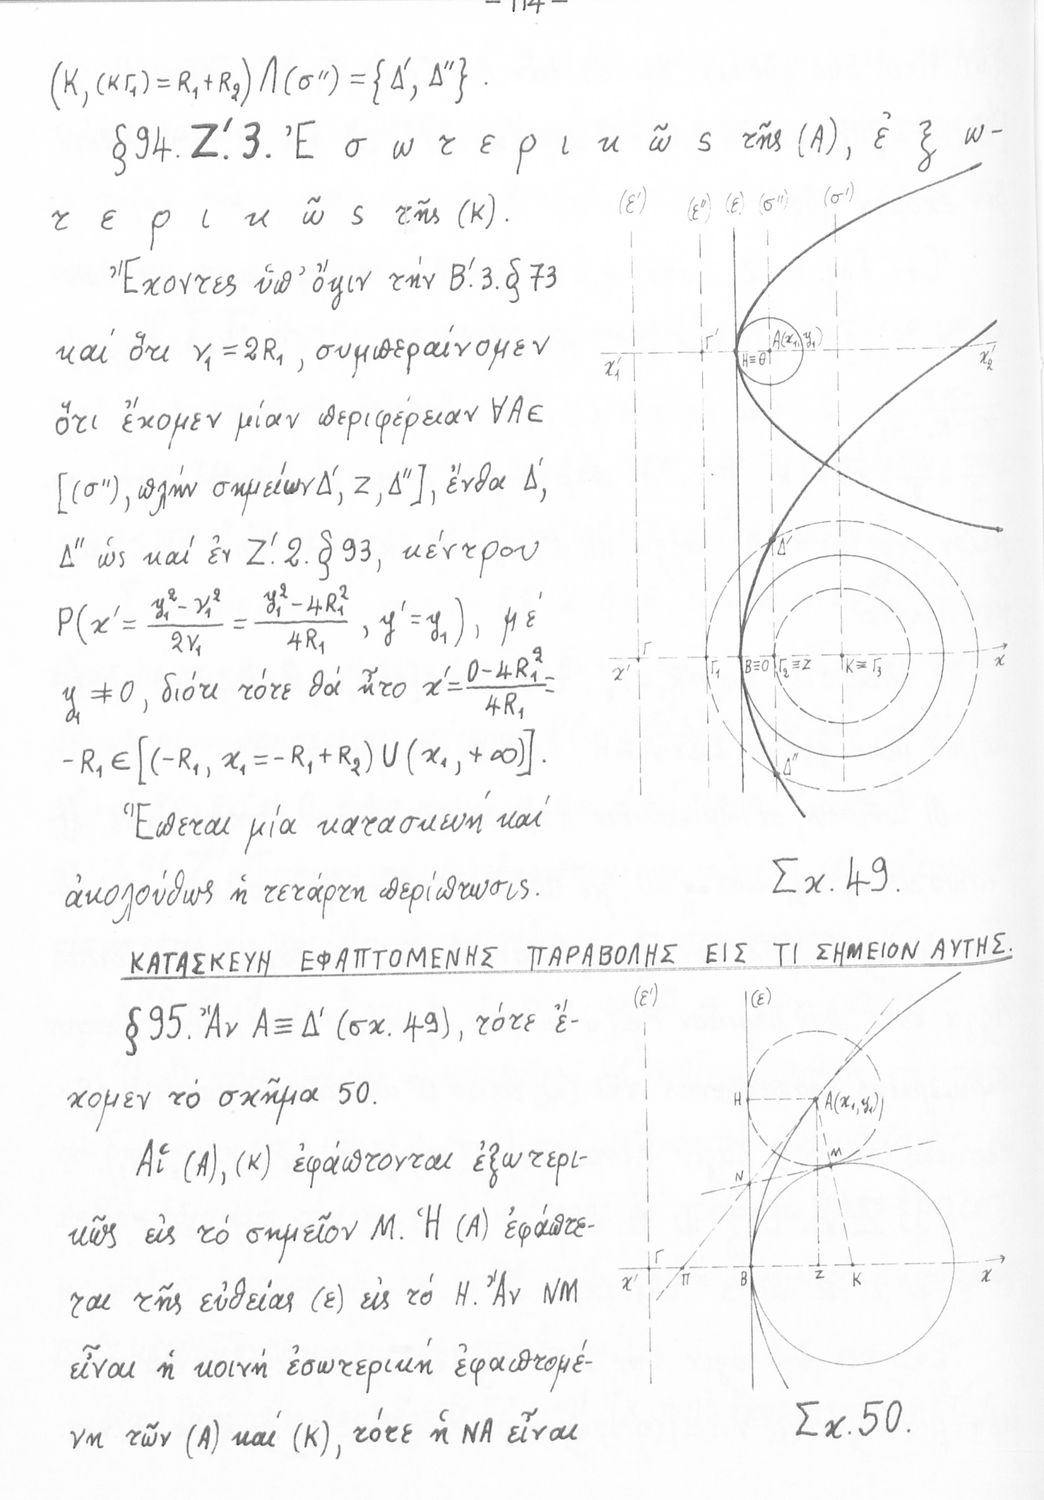 – 114 –
(Κ, (ΚΓ₁) = R₁+R₂) ⋂ (σ'') = {Δ', Δ''}.
§94. Ζ'. 3. Ἐσωτερικῶς τῆς (Α), ἐξω-
τερικῶς τῆς (Κ).
Ἔχοντες ὑπ' ὄψιν τήν Β'. 3. §73
καί ὅτι ν₁ = 2R₁, συμπεραίνομεν
ὅτι ἔχομεν μίαν περιφέρειαν ∀Α∈
[(σ''), πλήν σημείων Δ', Ζ, Δ''], ἔνθα Δ',
Δ'' ὡς καί ἐν Ζ'. 2. §93, κέντρου
Ρ(x' = (y₁² − ν₁²)/2ν₁ = (y₁² − 4R₁²)/4R₁, y' = y₁), μέ
y₁ ≠ 0, διότι τότε θά ἦτο x' = (0 − 4R₁²)/4R₁ =
−R₁ ∈ [(−R₁, x₁ = −R₁+R₂) ∪ (x₁, +∞)].
Ἕπεται μία κατασκευή καί
ἀκολούθως ἡ τετάρτη περίπτωσις.
(ε') (ε'') (ε) (σ'') (σ')
Γ' Η≡Θ Α(x₁, y₁)
x₁' x₂'
Δ'
Γ Γ₁ Β≡Ο Γ₂≡Ζ Κ≡Γ₃
x' x
Δ''
Σχ. 49.
ΚΑΤΑΣΚΕΥΗ ΕΦΑΠΤΟΜΕΝΗΣ ΠΑΡΑΒΟΛΗΣ ΕΙΣ ΤΙ ΣΗΜΕΙΟΝ ΑΥΤΗΣ.
§95. Ἄν Α≡Δ' (σχ. 49), τότε ἔ-
χομεν τό σχῆμα 50.
Αἱ (Α), (Κ) ἐφάπτονται ἐξωτερι-
κῶς εἰς τό σημεῖον Μ. Ἡ (Α) ἐφάπτε-
ται τῆς εὐθείας (ε) εἰς τό Η. Ἄν ΝΜ
εἶναι ἡ κοινή ἐσωτερική ἐφαπτομέ-
νη τῶν (Α) καί (Κ), τότε ἡ ΝΑ εἶναι
(ε') (ε)
Η Α(x₁, y₁)
Μ
Ν
Γ Π Β Ζ Κ
x' x
Σχ. 50.